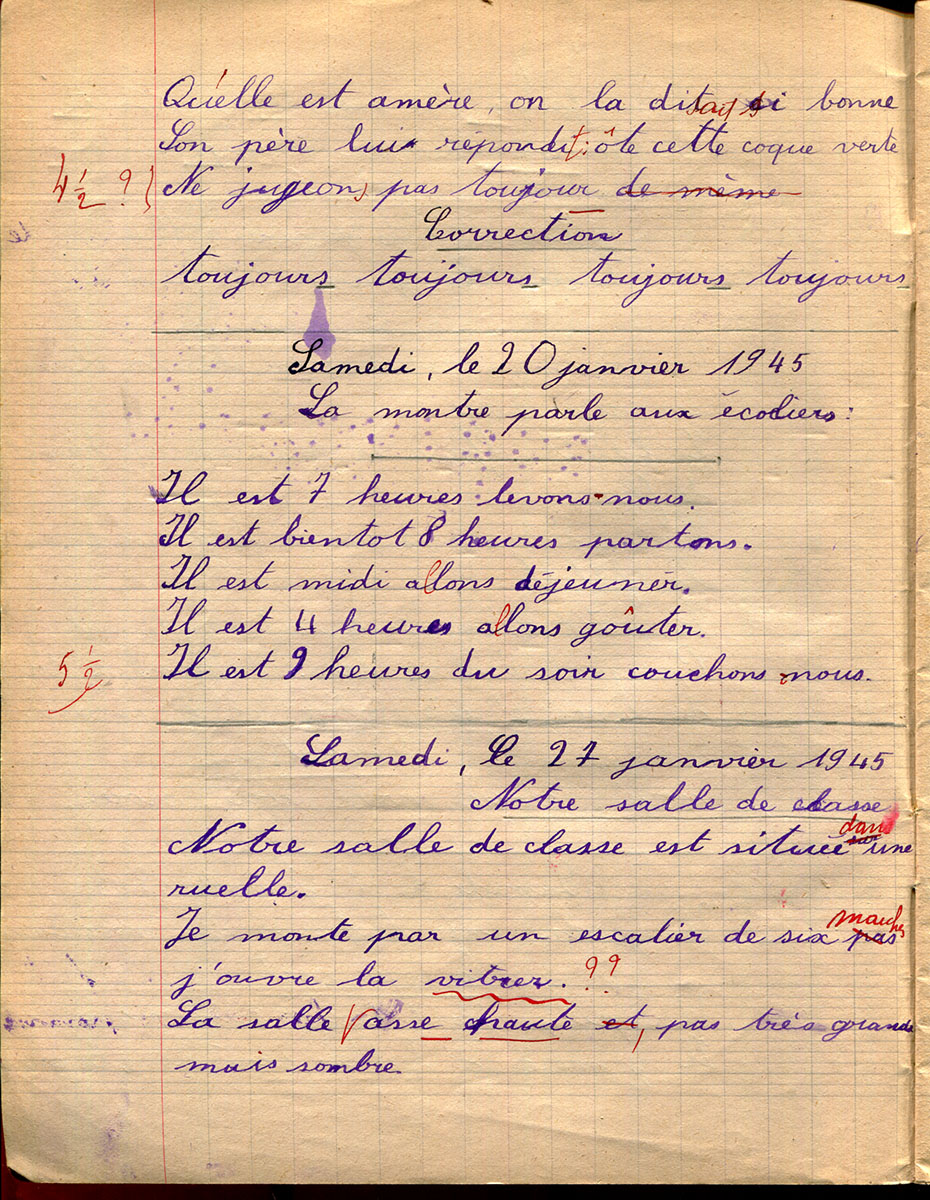 Qu'elle est amère, on la dit si bonne
Son père lui répondit : ôte cette coque verte
4 1/2 ?) Ne jugeons pas toujour de même
Correction
toujours toujours toujours toujours
Samedi, le 20 janvier 1945
La montre parle aux écoliers :
Il est 7 heures levons-nous.
Il est bientot 8 heures partons.
Il est midi allons déjeunér.
Il est 4 heures allons goûter.
5 1/2 Il est 9 heures du soir couchons nous.
Samedi, le 27 janvier 1945
Notre salle de classe
dans
Notre salle de classe est située sur une
ruelle.
marches
Je monte par un escalier de six pas
j'ouvre la vitrer. ??
La salle asse haute et, pas très grande
mais sombre.